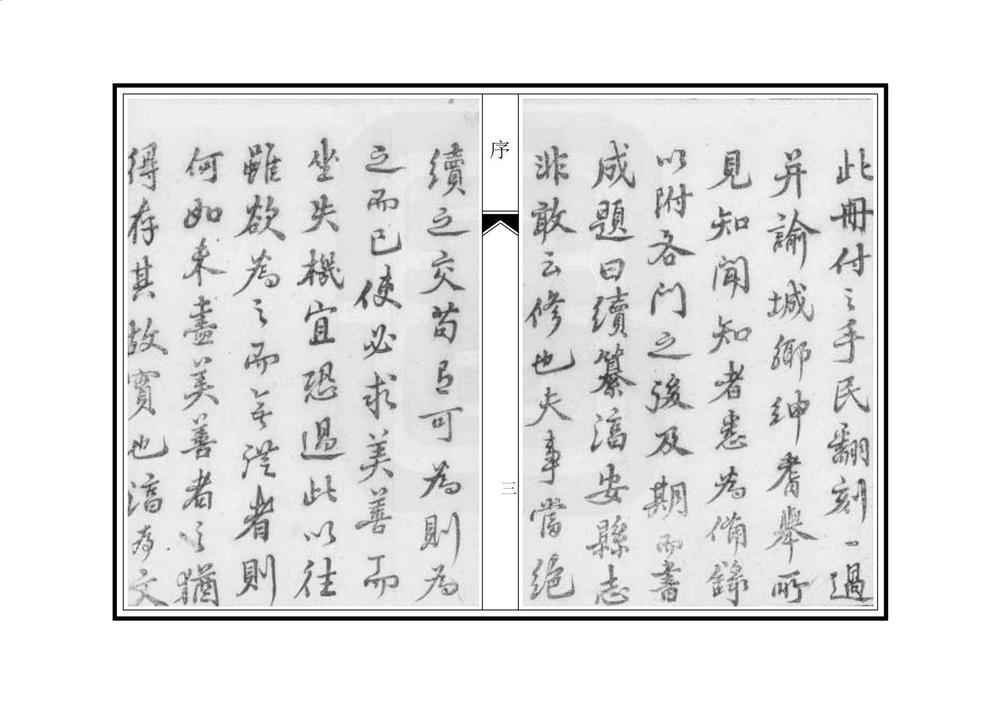 此冊付之手民翻刻一過
并諭城鄉紳耆舉所
見知聞知者悉為備錄
以附各門之後及期而書
成題曰續纂漓安縣志
非敢云修也夫事當絕
序
三
續之交苟有可為則為
之而已使必求美善而
坐失機宜恐過此以往
雖欲為之而無從者則
何如未盡美善者之猶
得存其故實也漓為文